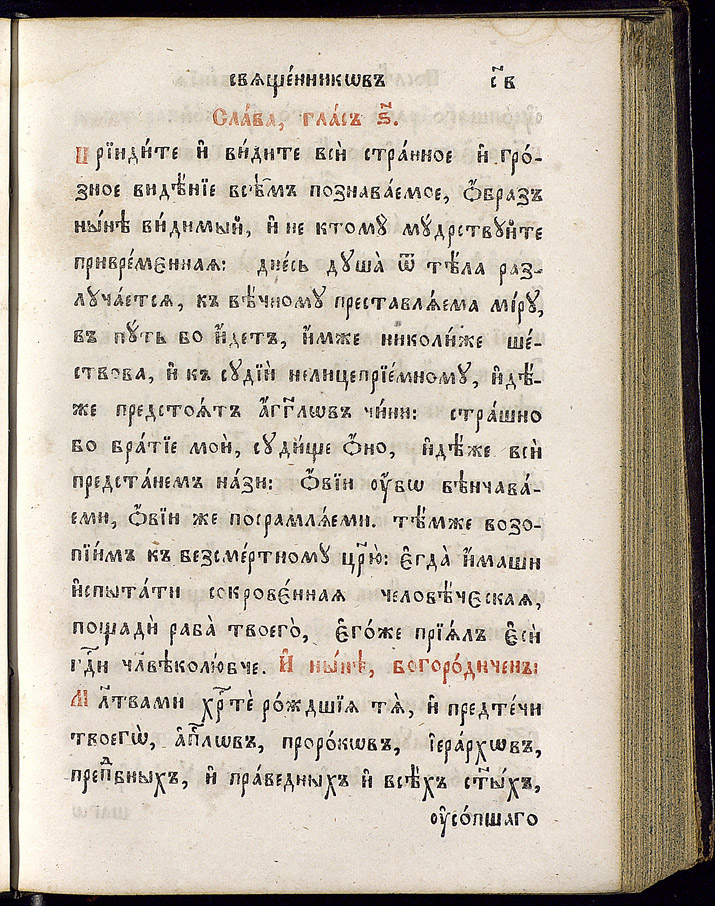 свяще́нникѡвъ с҃в
Сла́ва, гла́съ ѕ҃.
Прїиди́те и҆ ви́дите всѝ стра́нное и҆ гро́-
зное видѣ́нїе всѣ́мъ познава́емое, ѻ҆́бразъ
ны́нѣ ви́димый, и҆ не ктомꙋ̀ мꙋ́дрствꙋйте
привре́мєнная: дне́сь дꙋша̀ ѿ тѣ́ла раз-
лꙋча́ется, къ вѣ́чномꙋ преставлѧ́ема мі́рꙋ,
въ пꙋ́ть бо и҆́детъ, и҆́мже николи́же ше́-
ствова, и҆ къ сꙋдїѝ нелицепрїе́мномꙋ, и҆дѣ́-
же предстоѧ́тъ а҆́гг҃лѡвъ чи́ни: стра́шно
бо бра́тїе моѝ, сꙋди́ще ѻ҆́но, и҆дѣ́же всѝ
предста́немъ на́зи: ѻ҆́вїи ᲂу҆́бѡ вѣнчава́-
еми, ѻ҆́вїи же посрамлѧ́еми. тѣ́мже возо-
пїи́мъ къ безсме́ртномꙋ цр҃ю̀: є҆гда̀ и҆́маши
и҆спыта́ти сокрове́нная человѣ́чєская,
пощадѝ раба̀ твоего̀, є҆го́же прїѧ́лъ є҆сѝ
гд҃и чл҃вѣколю́бче. И҆ ны́нѣ, богоро́диченъ:
Мл҃твами хр҃тѐ ро́ждшїѧ тѧ̀, и҆ предте́чи
твоегѡ̀, а҆п҃лѡвъ, проро́кѡвъ, і҆ера́рхѡвъ,
преп҃бныхъ, и҆ пра́ведныхъ и҆ всѣ́хъ ст҃ы́хъ,
ᲂу҆со́пшаго